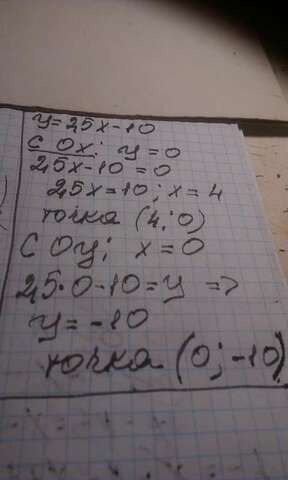 y=2,5x-10
С Ox: y=0
2,5x-10=0
2,5x=10; x=4
точка (4; 0)
С Oy; x=0
2,5·0-10=y =>
y=-10
точка (0; -10)